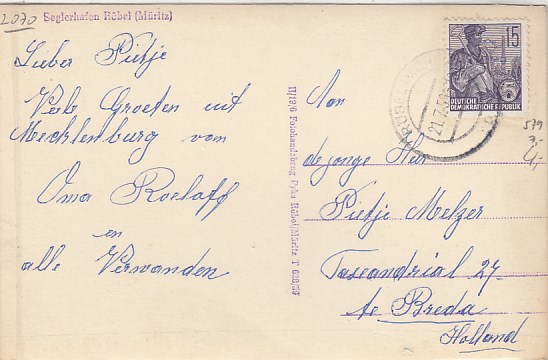 2070
Seglerhafen Röbel (Müritz)
Lieber Pietje
Veeb Groeten uit
Mecklenburg vom
Oma Roelaff
en
alle Verwanden
II/12/6 Foto Röbel/Müritz T
15
DEUTSCHE
DEMOKRATISCHE REPUBLIK
21.7.
579
3,-
4,-
Aan
de jonge Heer
Pietje Melzer
Taseandrial 27
te Breda
Holland